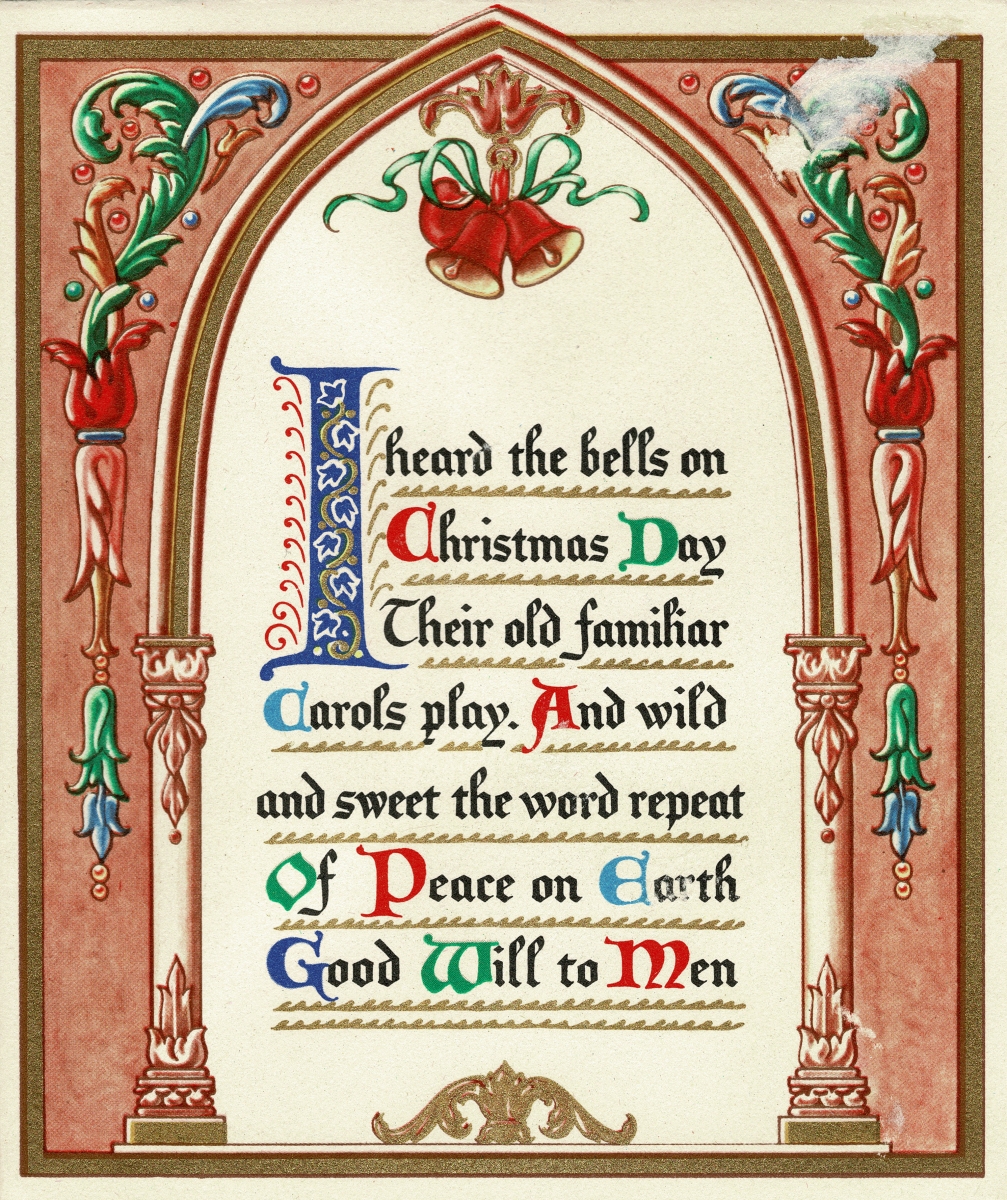 I heard the bells on
Christmas Day
Their old familiar
Carols play. And wild
and sweet the word repeat
Of Peace on Earth
Good Will to Men